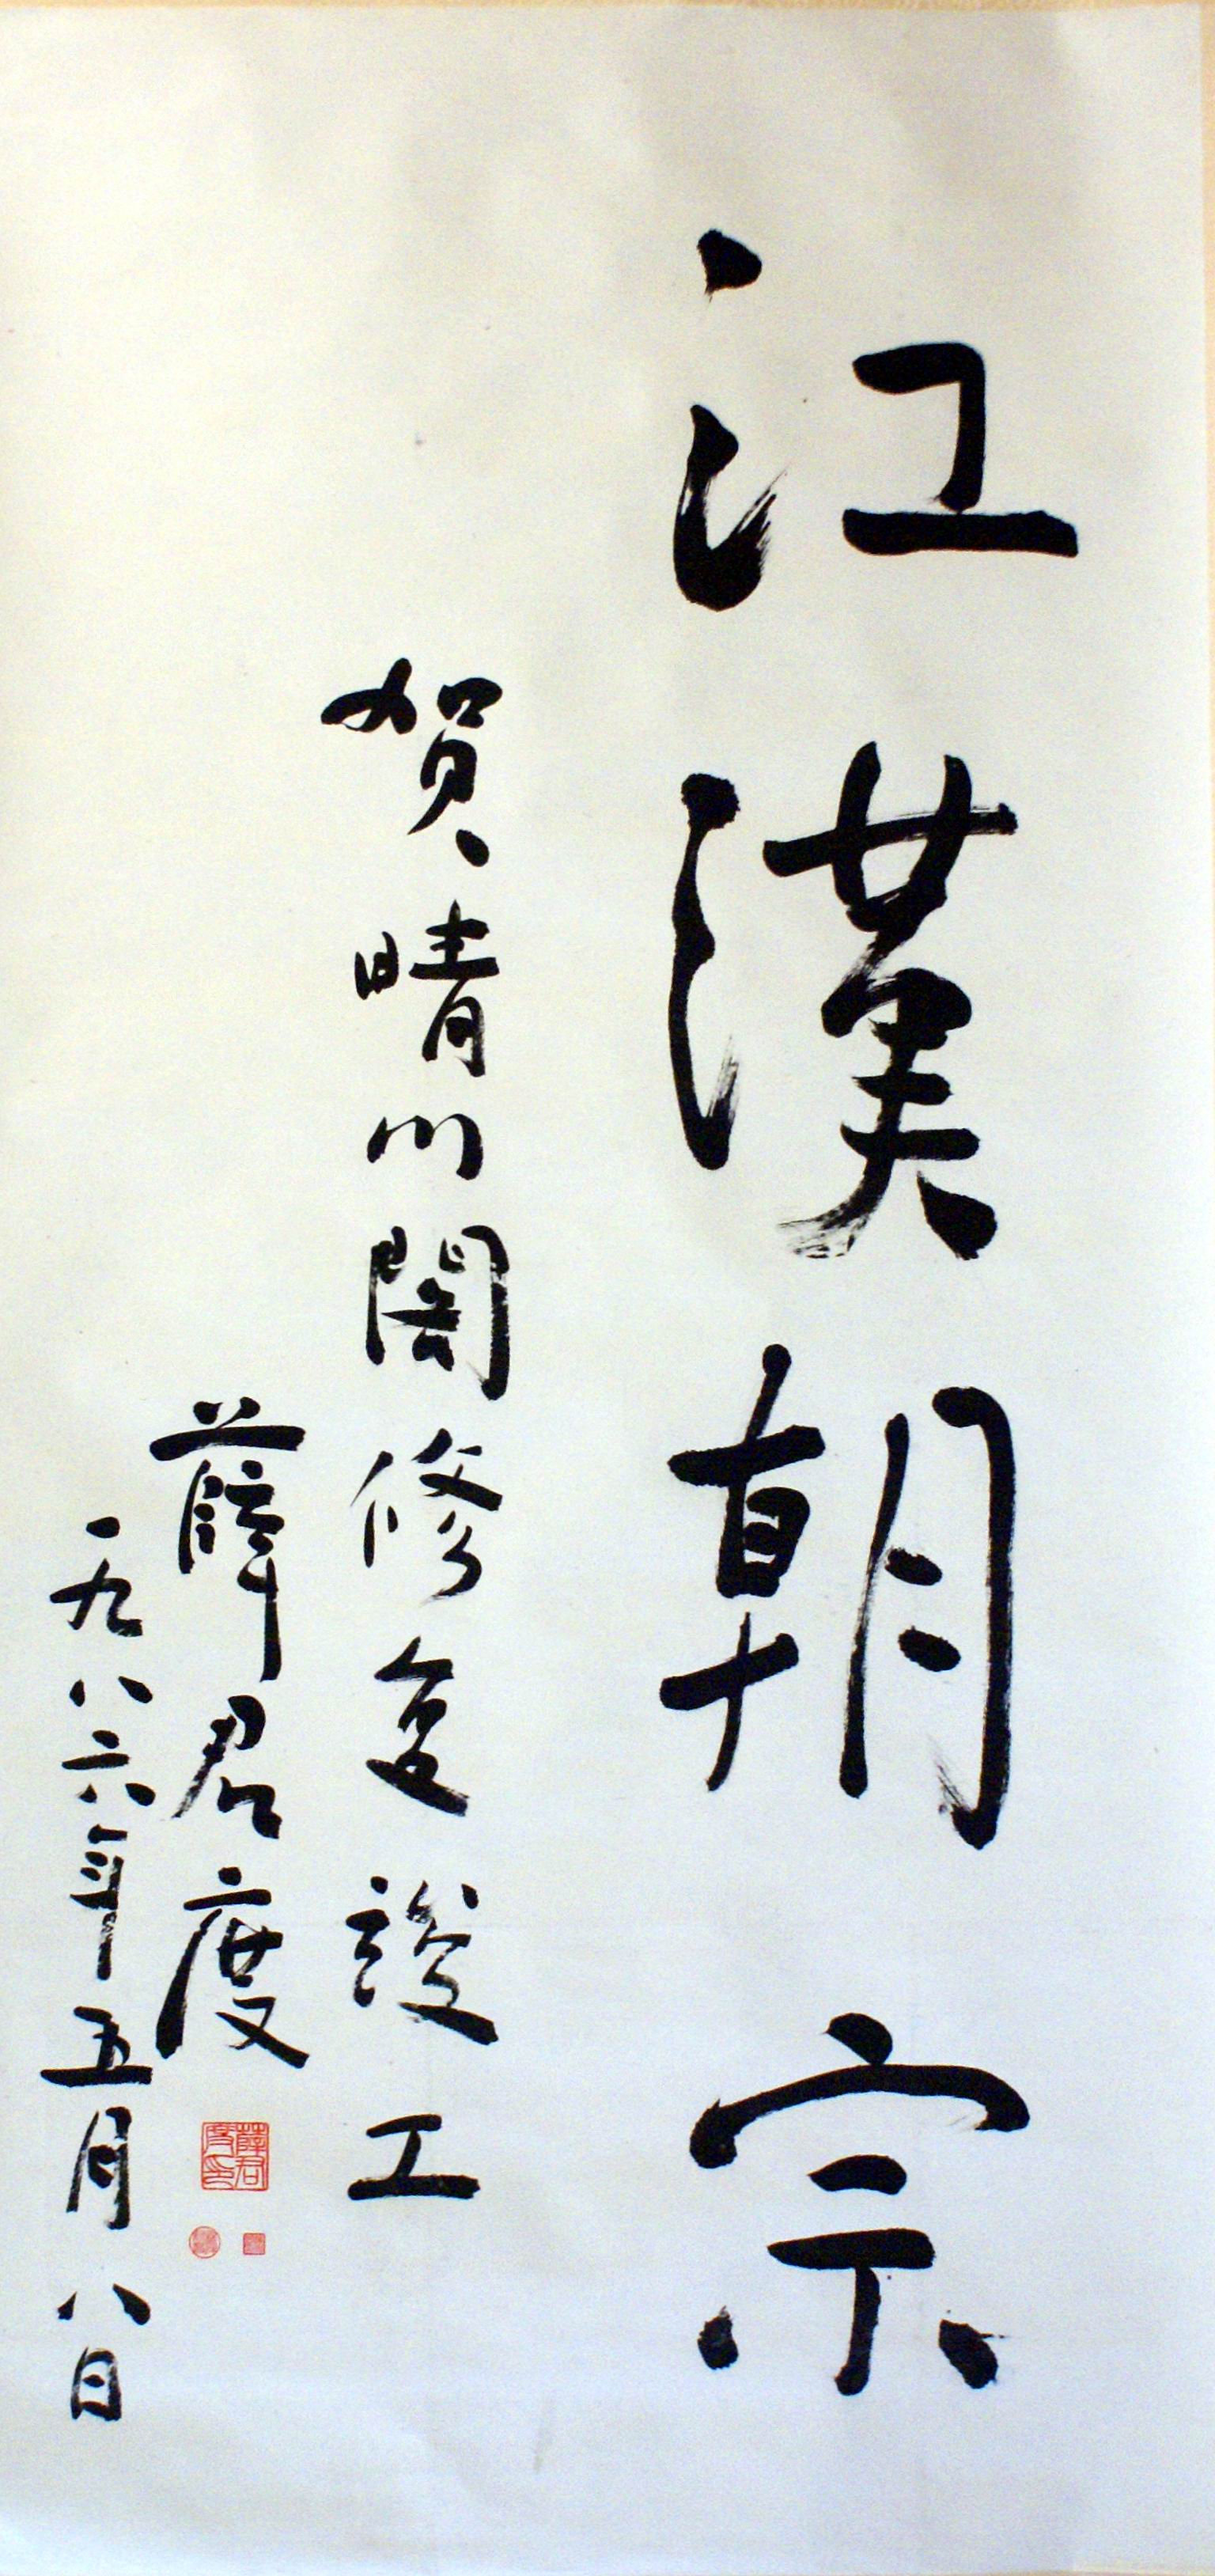 江漢朝宗
贺晴川閣修复竣工
薛君度
一九八六年五月八日
薛君度印